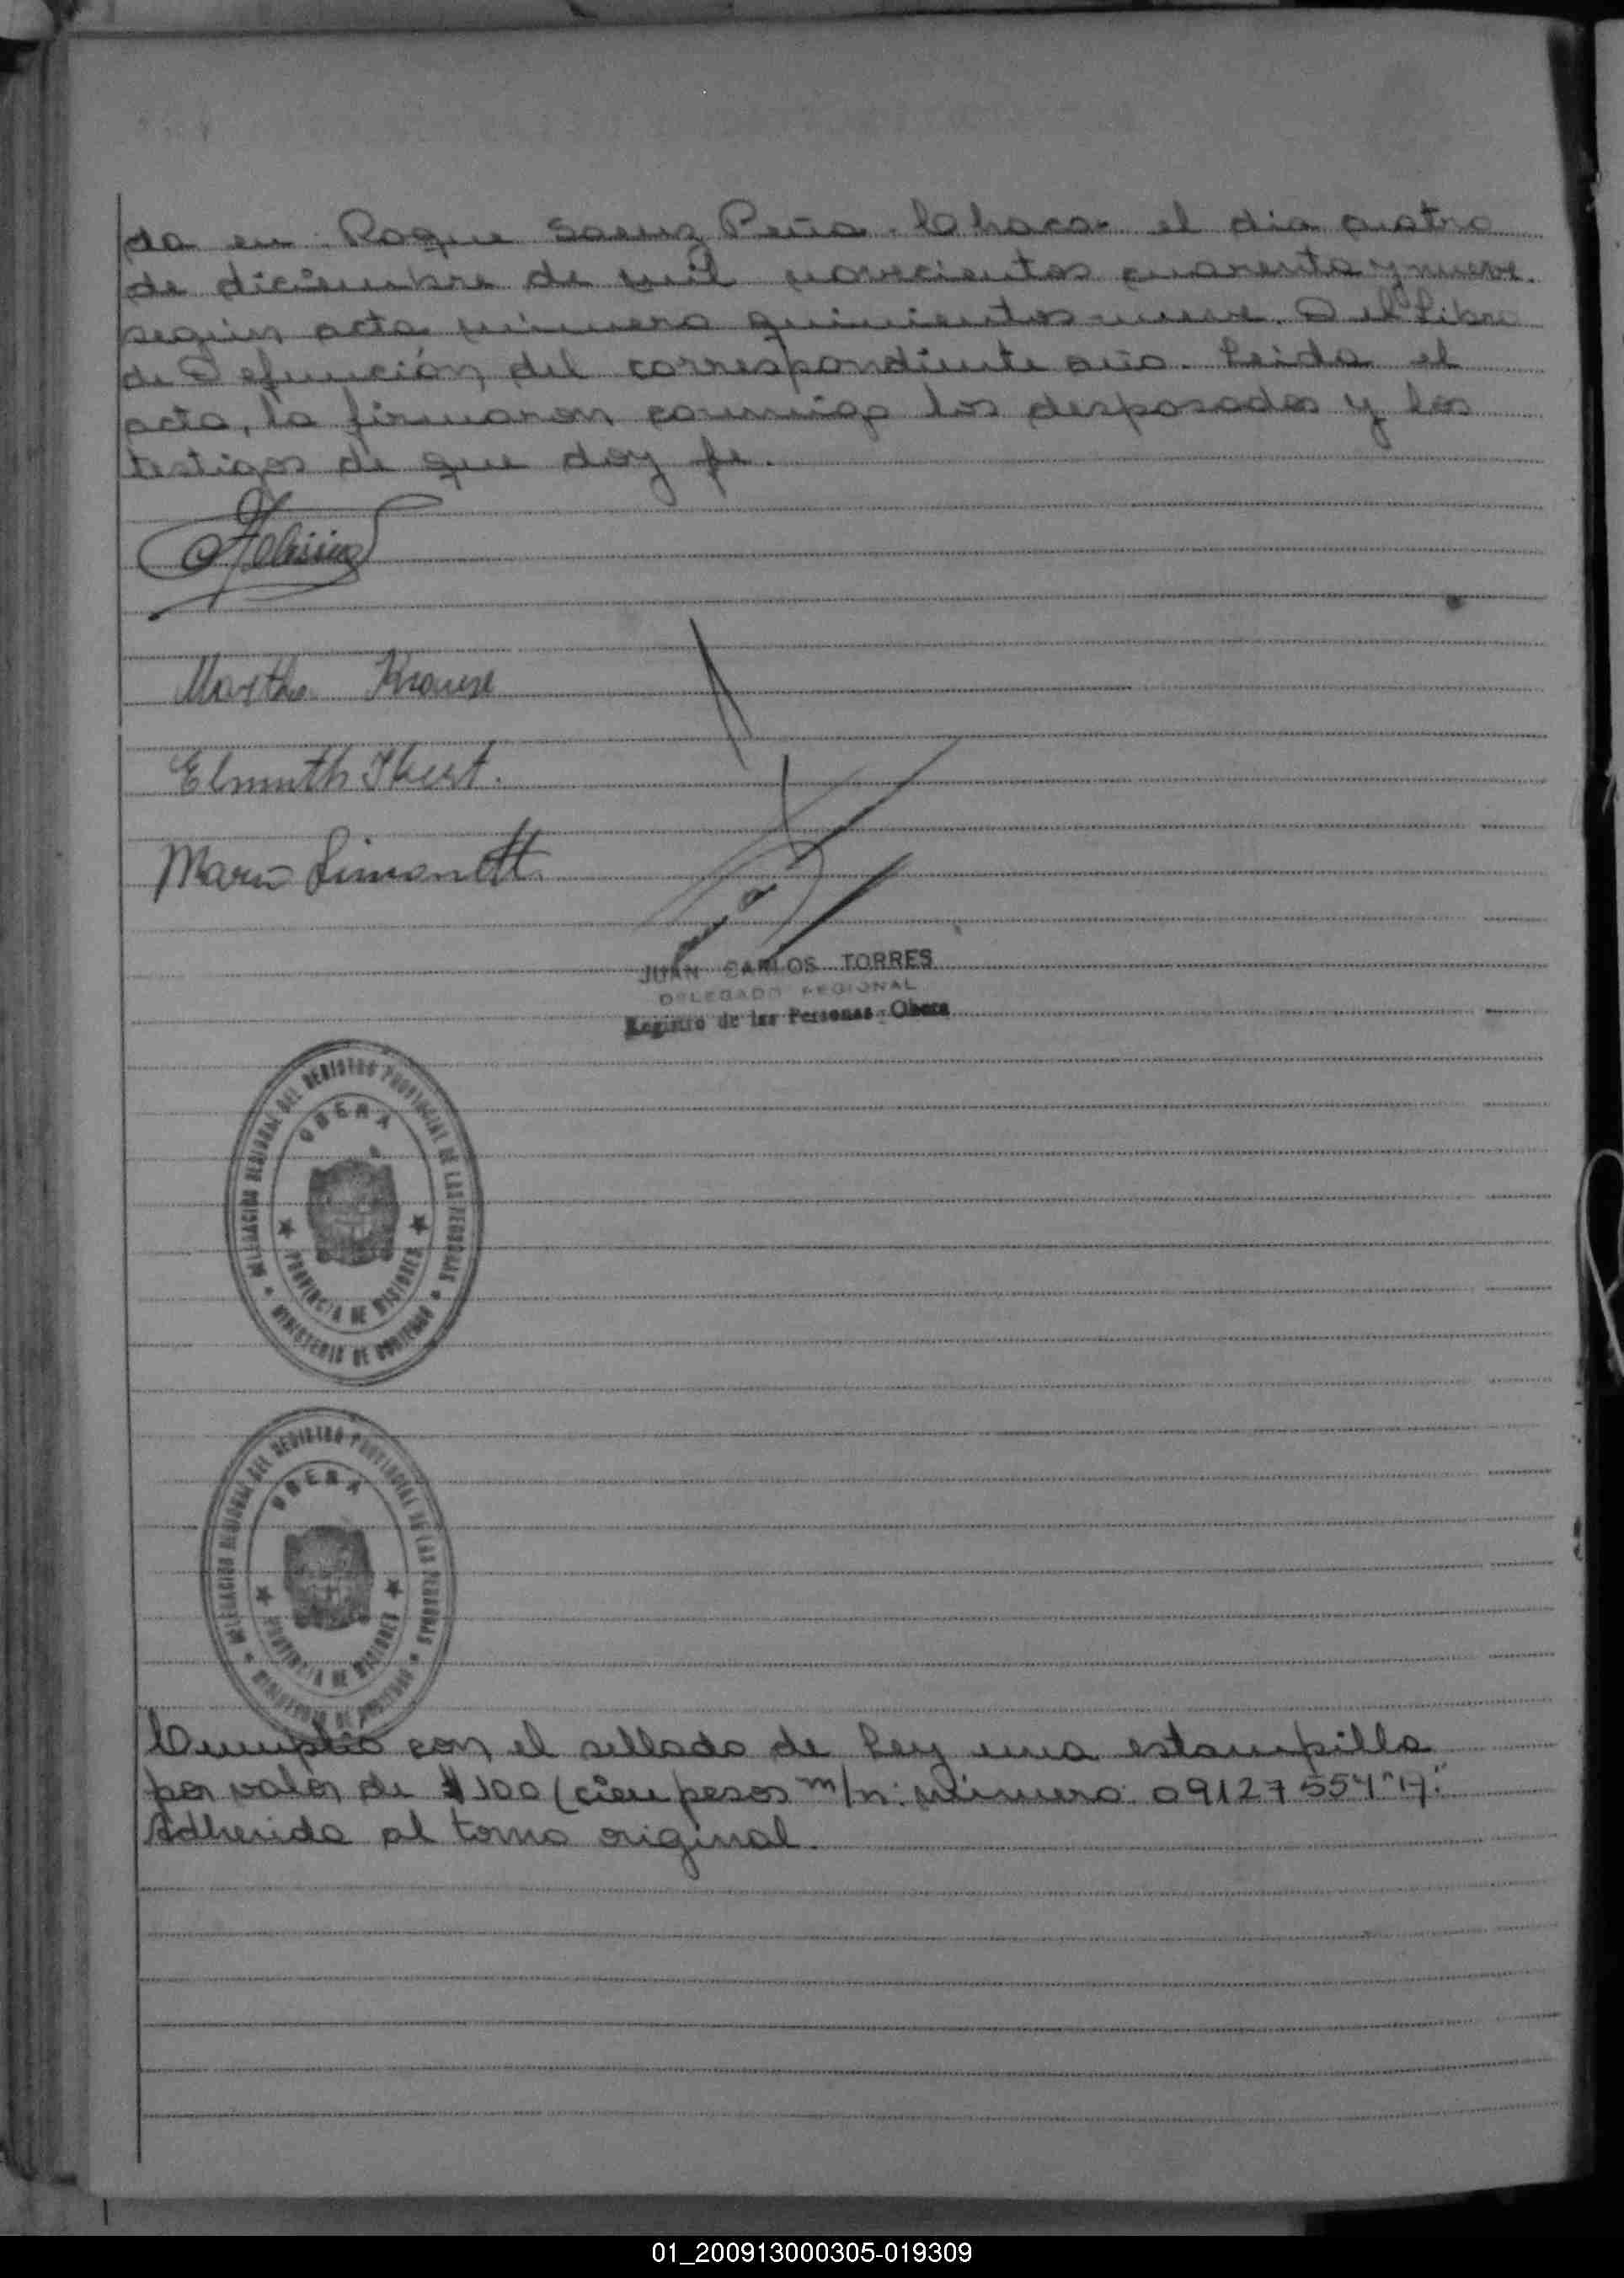 da en Roque Saenz Peña. Chaco. el dia cuatro
de diciembre de mil novecientos cuarenta y nueve.
según acta número quinientos nueve. Del Libro
de Defunción, del correspondiente año. Leida el
acta, la firmaron, conmigo los desposados y los
testigos de que doy fe.
Martha Krause
Elmuth
Mario Simonett
JUAN CARLOS TORRES
DELEGADO REGIONAL
Registro de las Personas - Obera
DELEGACION REGIONAL DEL REGISTRO PROVINCIAL DE LAS PERSONAS
OBERA
PROVINCIA DE MISIONES
MINISTERIO DE GOBIERNO
DELEGACION REGIONAL DEL REGISTRO PROVINCIAL DE LAS PERSONAS
OBERA
PROVINCIA DE MISIONES
MINISTERIO DE GOBIERNO
Cumplio con el sellado de Ley una estampilla
por valor de $ 100 (cien pesos m/n: número: 09127554
Adherida al tomo original.
01_200913000305-019309